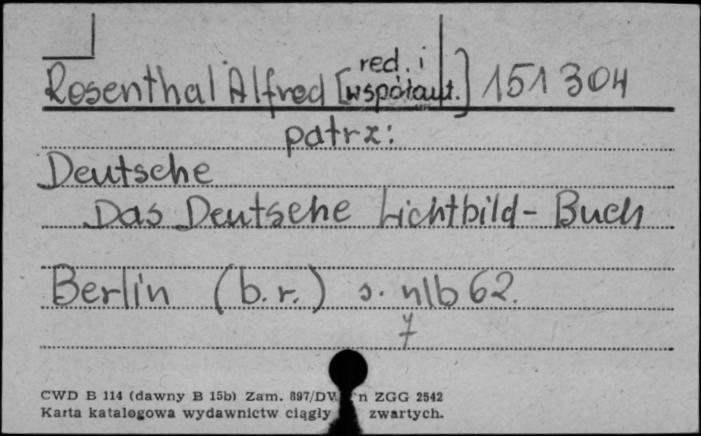 Rosenthal Alfred [red. i współaut.] 151304
patrz:
Deutsche
Das Deutsche Lichtbild-Buch
Berlin (b.r.) s. nlb 62.
7
CWD B 114 (dawny B 15b) Zam. 897/DW n ZGG 2542
Karta katalogowa wydawnictw ciągły zwartych.